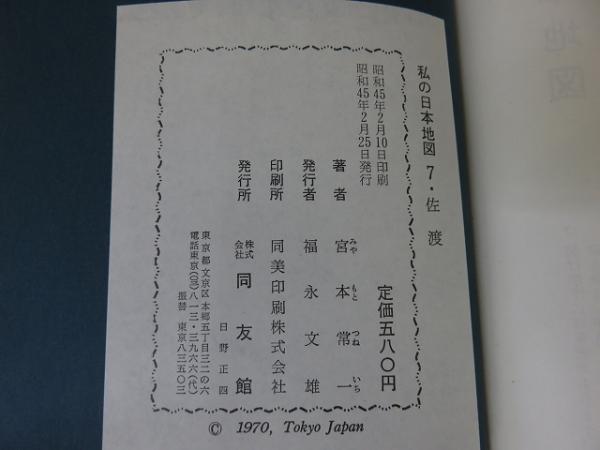 私の日本地図 7・佐渡
昭和45年2月10日印刷
昭和45年2月25日発行
定価五八〇円
著者 宮本常一
みや もと つね いち
発行者 福永文雄
印刷所 同美印刷株式会社
発行所 株式会社 同友館
日野正四
東京都文京区本郷五丁目三二の六
電話東京(三)八一三・三九六六(代)
振替 東京八三五〇三
© 1970, Tokyo Japan
地図